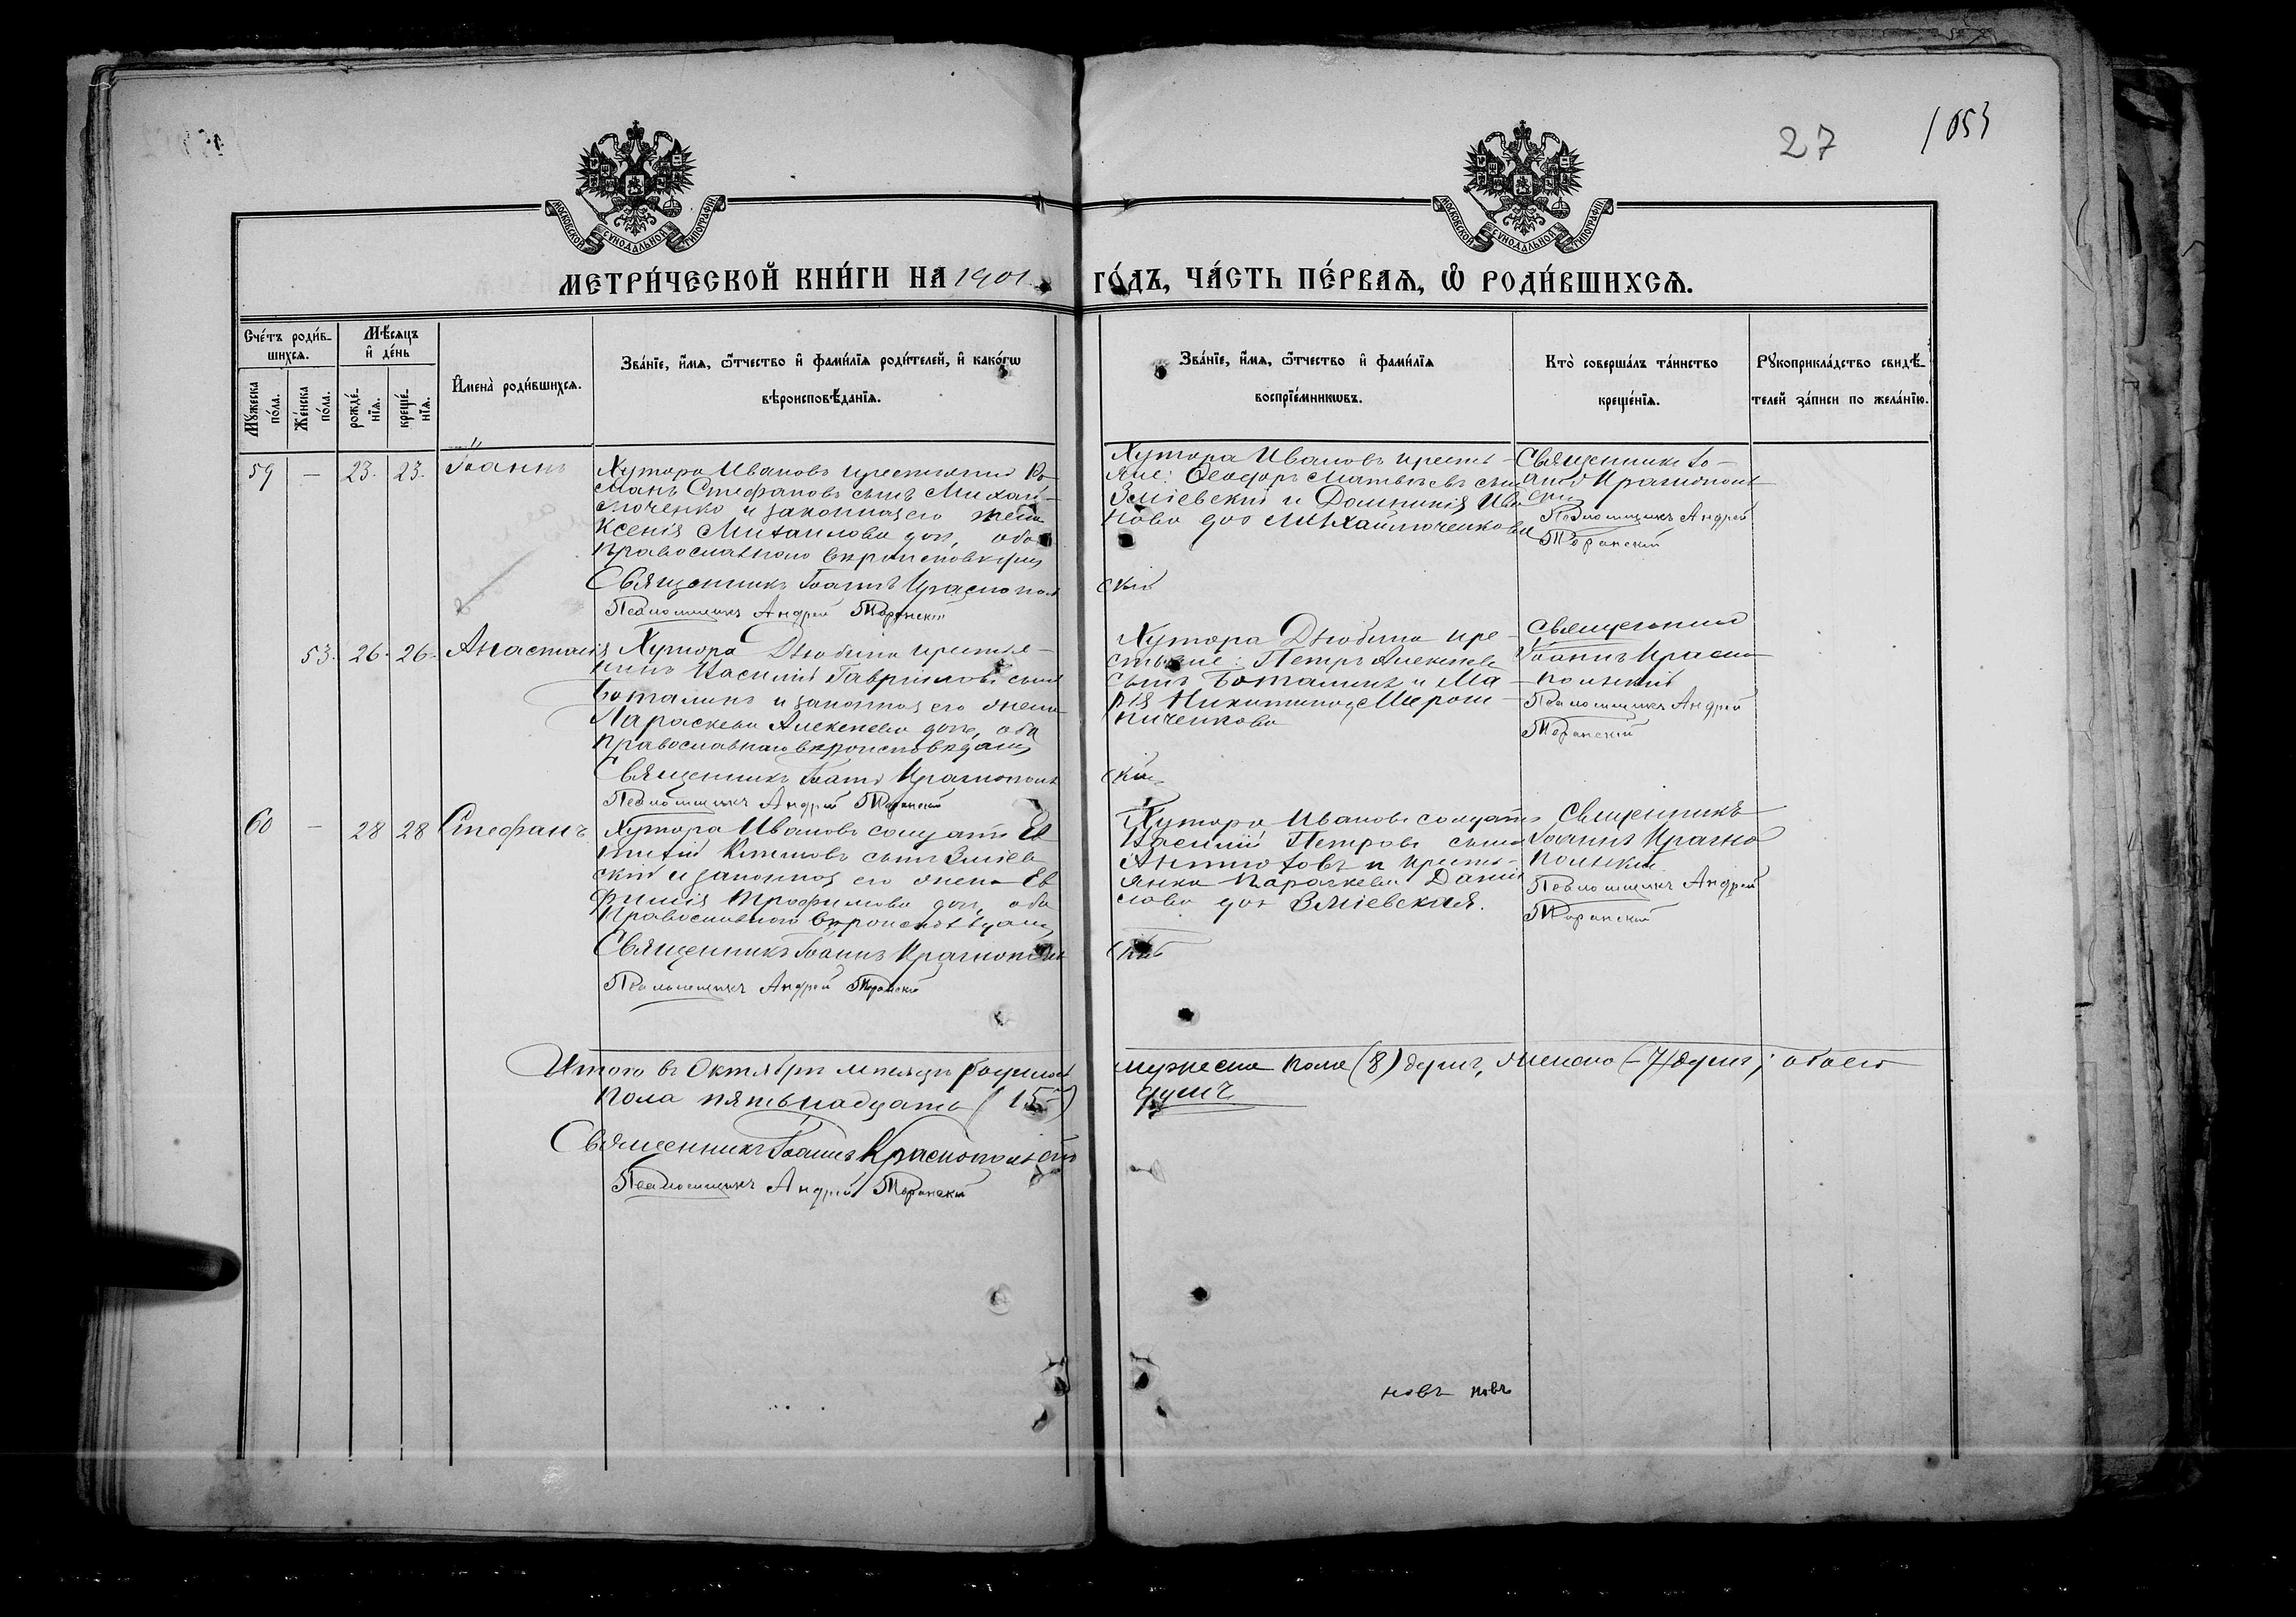 27
1053
МОСКОВСКОЙ СѴНОДАЛЬНОЙ ТИПОГРАФІИ
МОСКОВСКОЙ СѴНОДАЛЬНОЙ ТИПОГРАФІИ
МЕТРИ́ЧЕСКОЙ КНИ́ГИ НА 1901 ГО́ДЪ, ЧА́СТЬ ПЕ́РВАѦ, Ѡ҆ РОДИ́ВШИХСѦ.
Сче́тъ роди́в-
шихсѧ.
Мꙋжеска по́ла.
Же́нска по́ла.
Мѣ́сѧцъ
и҆ де́нь
рожде́-
нїѧ.
креще́-
нїѧ.
И҆мена̀ роди́вшихсѧ.
Зва́нїе, и҆́мѧ, ѻ҆́тчество и҆ фами́лїѧ роди́телей, и҆ како́гѡ
вѣроисповѣ́данїѧ.
Зва́нїе, и҆́мѧ, ѻ҆́тчество и҆ фами́лїѧ
воспрїе́мникѡвъ.
Кто̀ соверша́лъ та́инство
креще́нїѧ.
Рꙋкоприкла́дство свидѣ́-
телей за́писи по жела́нїю.
59 — 23. 23. Іоаннъ
Хутора Иванова крестьянинъ Ро-
манъ Стефановъ сынъ Михай-
люченко и законная его жена
Ксенія Михаилова доч, оба
православнаго вѣроисповѣданія
Священникъ Іоаннъ Краснополь
ский
Псаломщикъ Андрей
Хутора Иванова кресть-
яне: Ѳеодоръ Матвѣевъ сынъ
Зміевскій и Домникія Ива
нова доч Михайлюченкова
Священникъ Іо-
аннъ Краснополь
скій
Псаломщикъ Андрей
53. 26. 26. Анастасія
Хутора Дзюбина крестья-
нинъ Василій Гавриловъ сынъ
Боталинъ и законная его жена
Параскева Алексеева доч, оба
православнаго вѣроисповѣданія
Священникъ Іоаннъ Краснополь
скій
Псаломщикъ Андрей
Хутора Дзюбина кре-
стьяне: Петръ Алексеевъ
сынъ Боталинъ и Ма-
рія Никитина Мирош-
ниченкова
Священникъ
Іоаннъ Красно
польскій
Псаломщикъ Андрей
60 — 28 28 Стефанъ
Хутора Иванова солдатъ Ев
сынъ Зміев
скій и законная его жена Ев
фимія Трофимова доч, оба
Православнаго вѣроисповѣданія
Священникъ Іоаннъ Краснополь
скій
Псаломщикъ Андрей
Хутора Иванова солдатъ
Василій Петровъ сынъ
Антюховъ и кресть-
янка Параскева Дани
лова доч Зміевская.
Священникъ
Іоаннъ Красно
польскій
Псаломщикъ Андрей
Итого въ Октябрѣ мѣсяцѣ родилось мужеска пола (8) душъ, женска (-7) душъ; обоего
пола пятьнадцать (15-) душъ
Священникъ Іоаннъ Краснопольскій
Псаломщикъ Андрей
новъ новъ